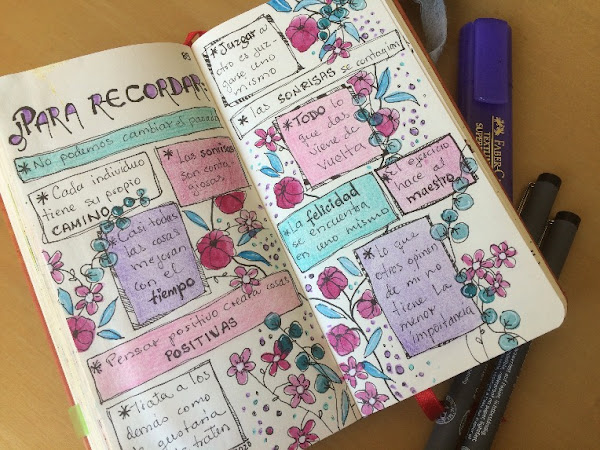 ¡PARA RECORDAR:
* No podemos cambiar el pasado
* Cada individuo
tiene su propio
CAMINO
* Las sonrisas
son conta
giosas
* Casi todas
las cosas
mejoran
con el
tiempo
* Pensar positivo creará cosas
POSITIVAS
* Trata a los
demás como
te gustaría
te traten
2020
* Juzgar a
otro es juz
garse uno
mismo
* Las SONRISAS se contagian
* TODO lo
que das
viene de
vuelta
* El ejercicio
hace al
maestro
* La felicidad
se encuentra
en uno mismo
* Lo que
otros opinen
de mi no
tiene la
menor
importancia
FABER-C
TEXTLI
SUPERF